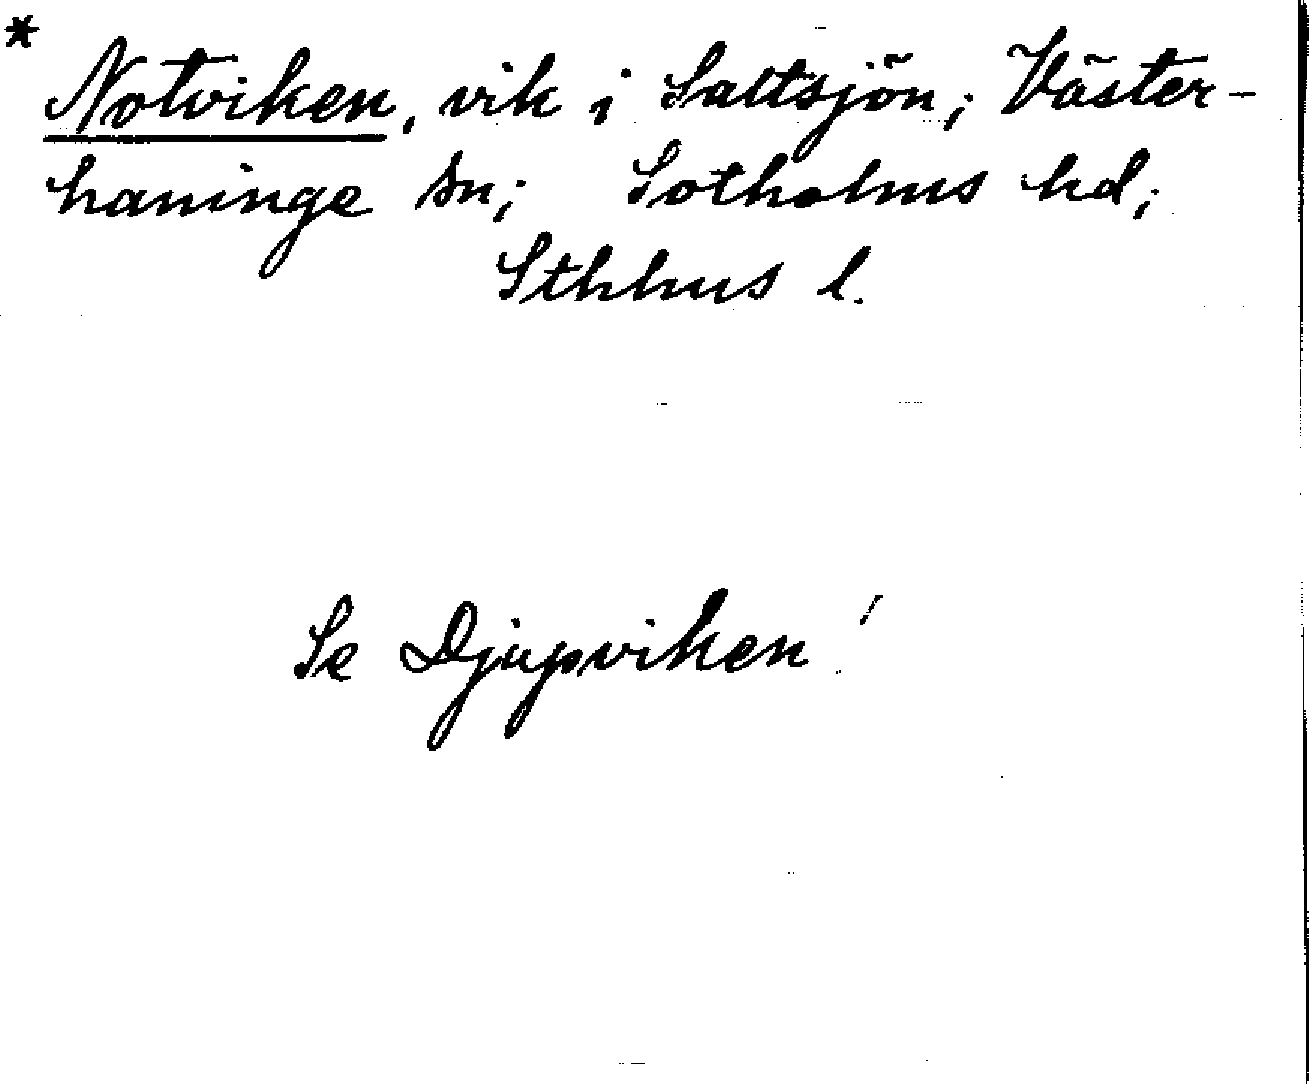 * Notviken, vik i Saltsjön; Väster-
haninge sn; Sotholms hd;
Sthlms l.
Se Djupviken!